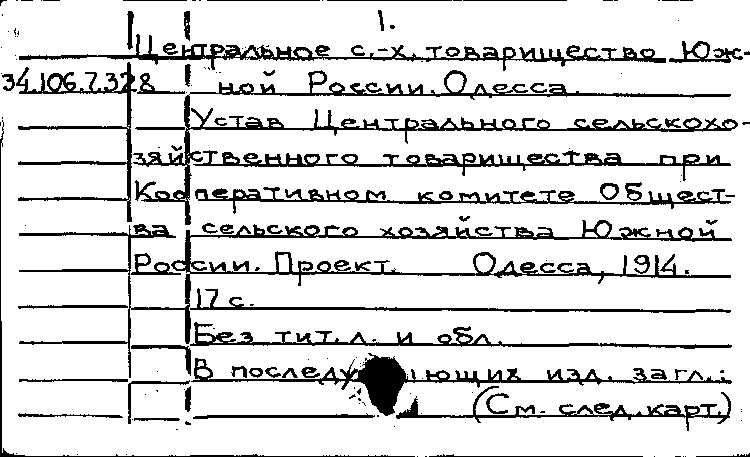 1.
Центральное с.-х. товарищество Юж-
34.106.7.328 ной России. Одесса.
Устав Центрального сельскохо-
зяйственного товарищества при
Кооперативном комитете Общест-
ва сельского хозяйства Южной
России. Проект. Одесса, 1914.
17 с.
Без тит. л. и обл.
В последующих изд. загл.:
(См. след. карт.)